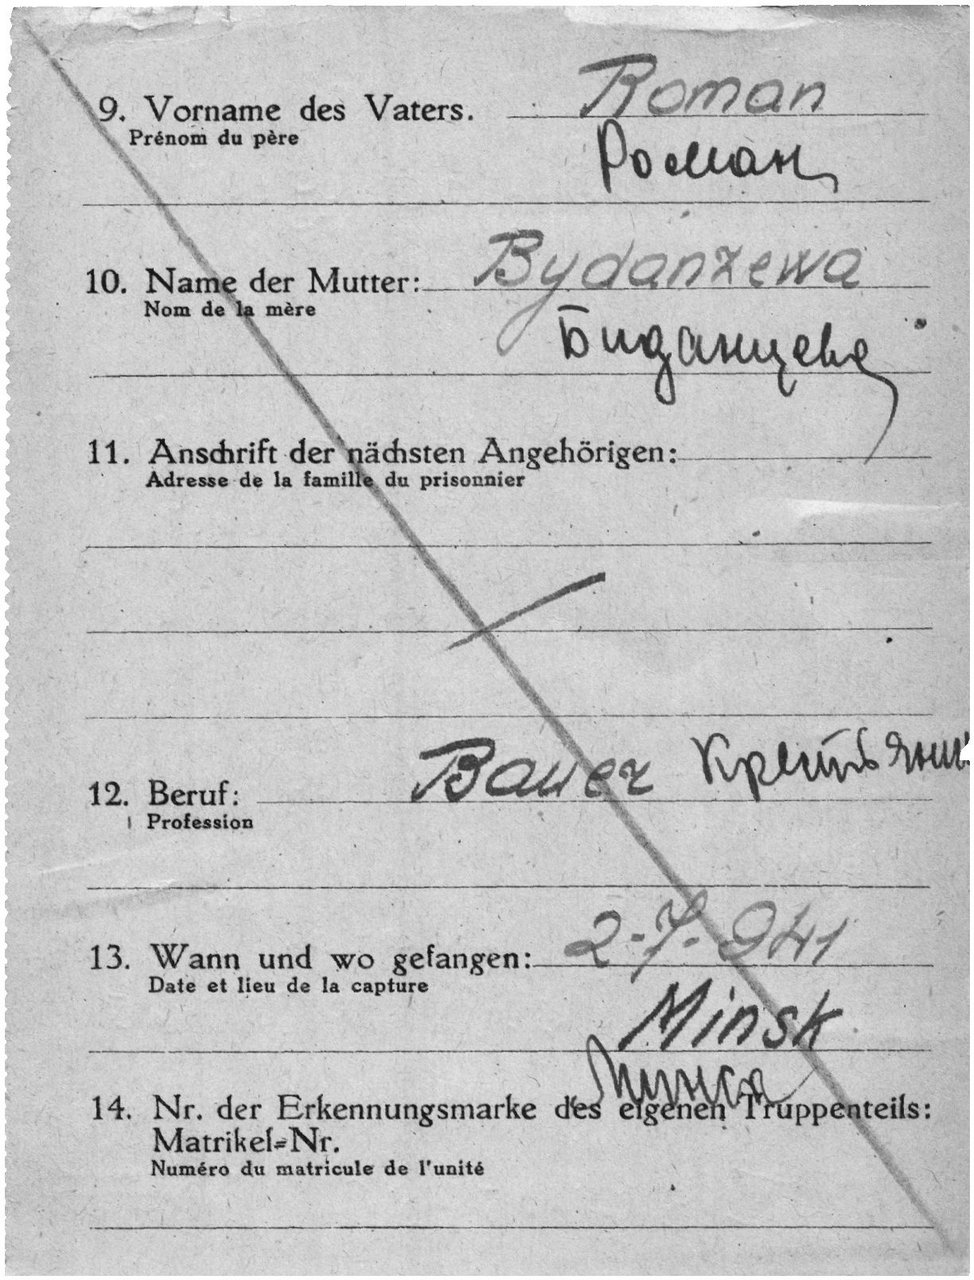 9. Vorname des Vaters. Roman
Prénom du père
Роман
10. Name der Mutter: Bydanzewa
Nom de la mère
Биданцева
11. Anschrift der nächsten Angehörigen:
Adresse de la famille du prisonnier
12. Beruf: Bauer
Profession
13. Wann und wo gefangen: 2-7-941
Date et lieu de la capture
Minsk
14. Nr. der Erkennungsmarke des eigenen Truppenteils:
Matrikel=Nr.
Numéro du matricule de l'unité